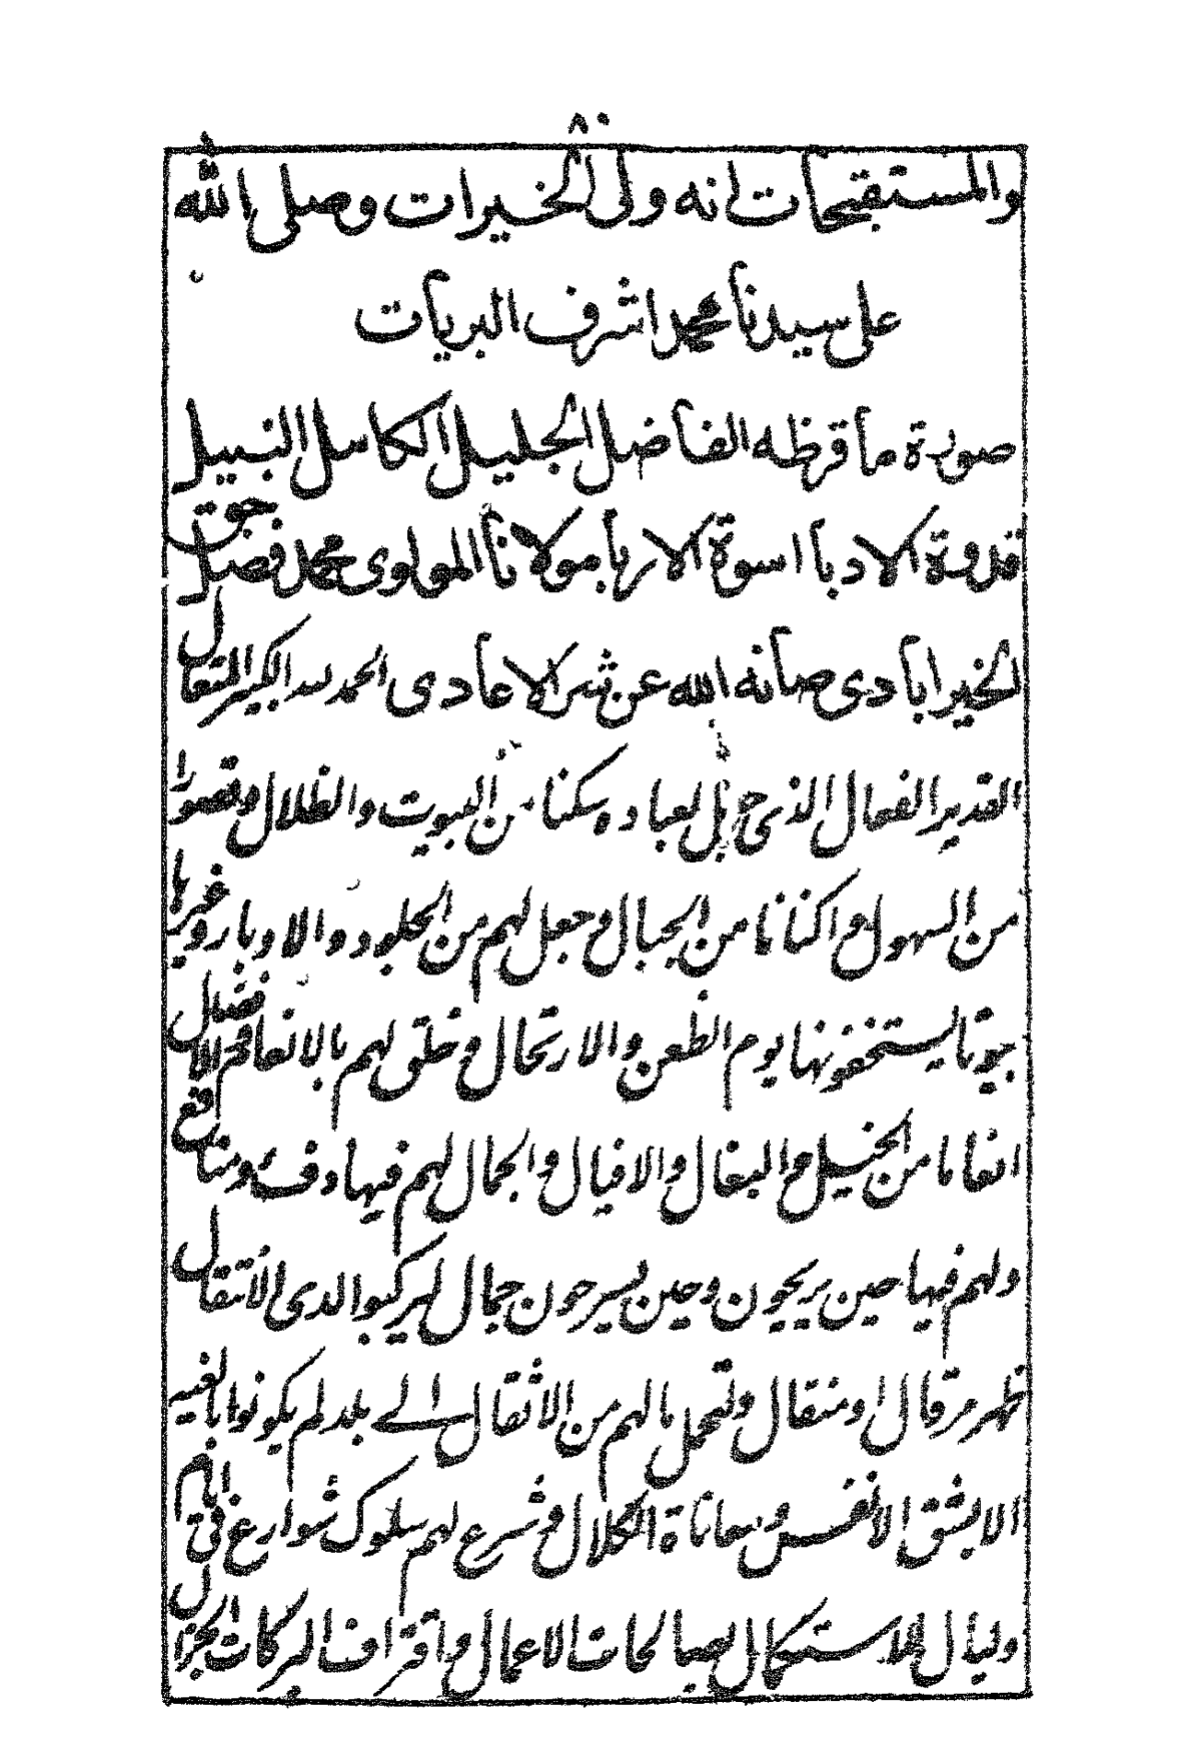 ٨٠
والمستقبحات انه ولى الخيرات وصلى الله
على سيدنا محمد اشرف البريات
صورة ما قرظه الفاضل الجليل الكامل النبيل
قدوة الادبا اسوة الاربا مولانا المولوى محمد فضل حق
الخيرابادى صانه الله عن شر الاعادى الحمد لله الكبير المتعال
القدير الفعال الذى جعل لعباده سكنا من البيوت والظلال وقصورا
من السهول واكنانا من الجبال وجعل لهم من الجلود والاوبار وغيرها
بيوتا يستخفونها يوم الظعن والارتحال وخلق لهم بالانعام والافضال
انعاما من الخيل والبغال والافيال والجمال لهم فيها دفء ومنافع
ولهم فيها حين يريحون وحين يسرحون جمال ليركبوا لدى الانتقال
ظهر مرقال او منقال وتحمل بالهم من الاثقال الى بلد لم يكونوا بالغيه
الا بشق الانفس ومعاناة الكلال وشرع لهم سلوك شوارع فى ايام
وليال للاستكمال بصالحات الاعمال واقتراف البركات الجزال